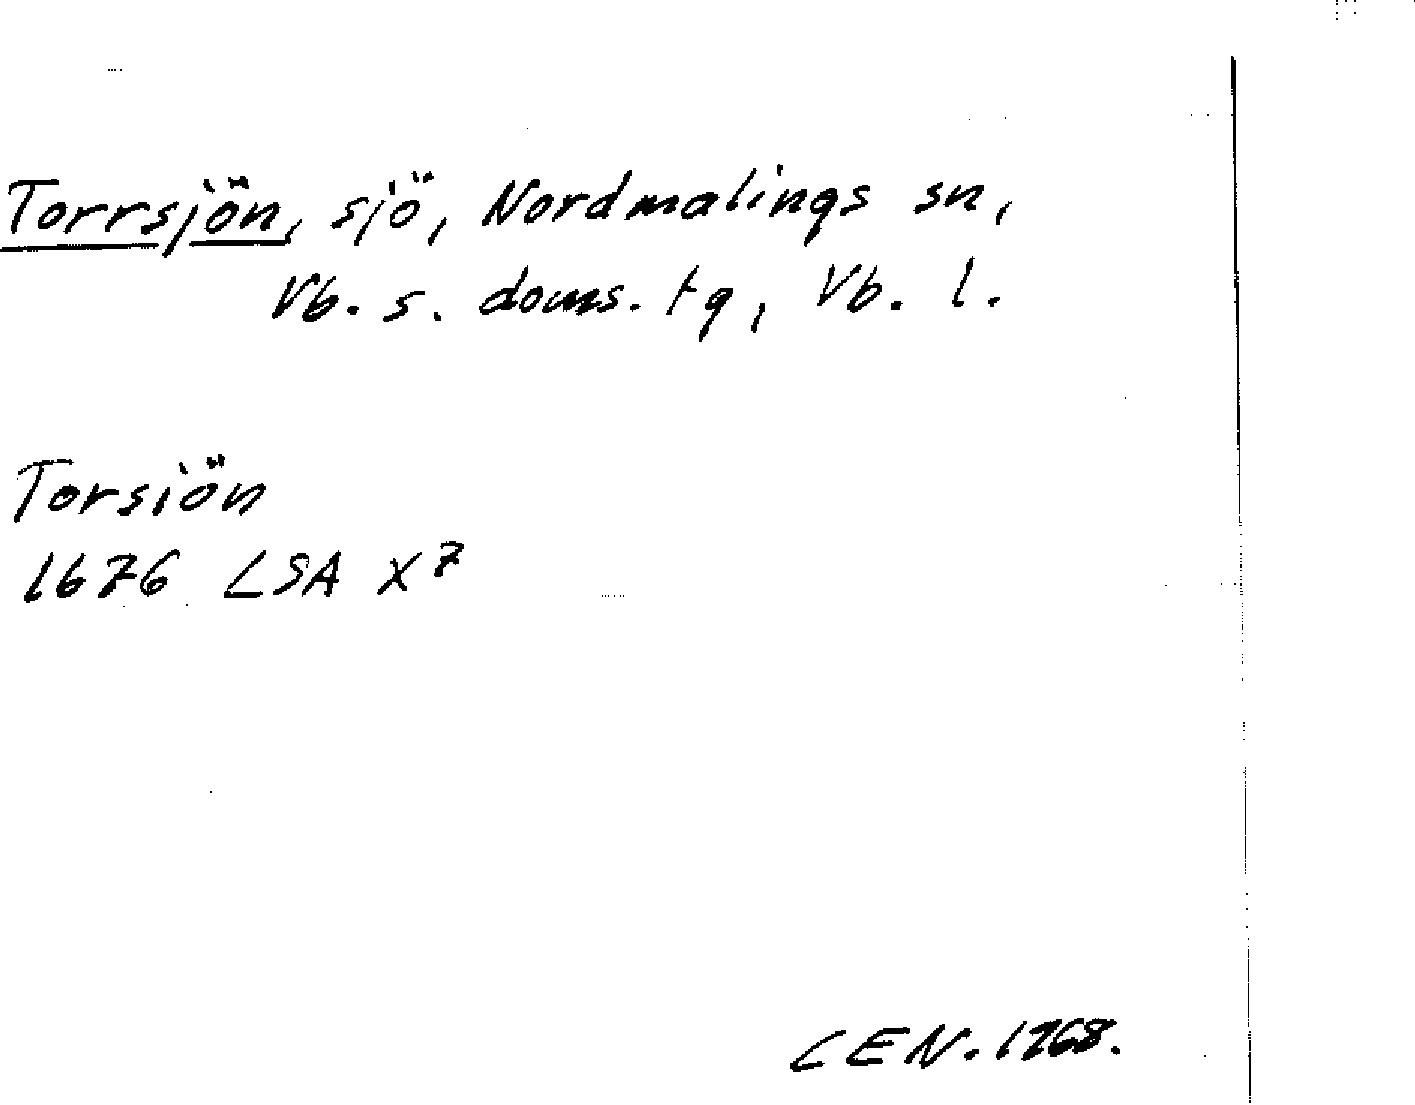 Torrsjön, sjö, Nordmalings sn,
Vb. s. doms. tg, Vb. l.
Torsiön
1676 LSA X7
CEN. 1968.